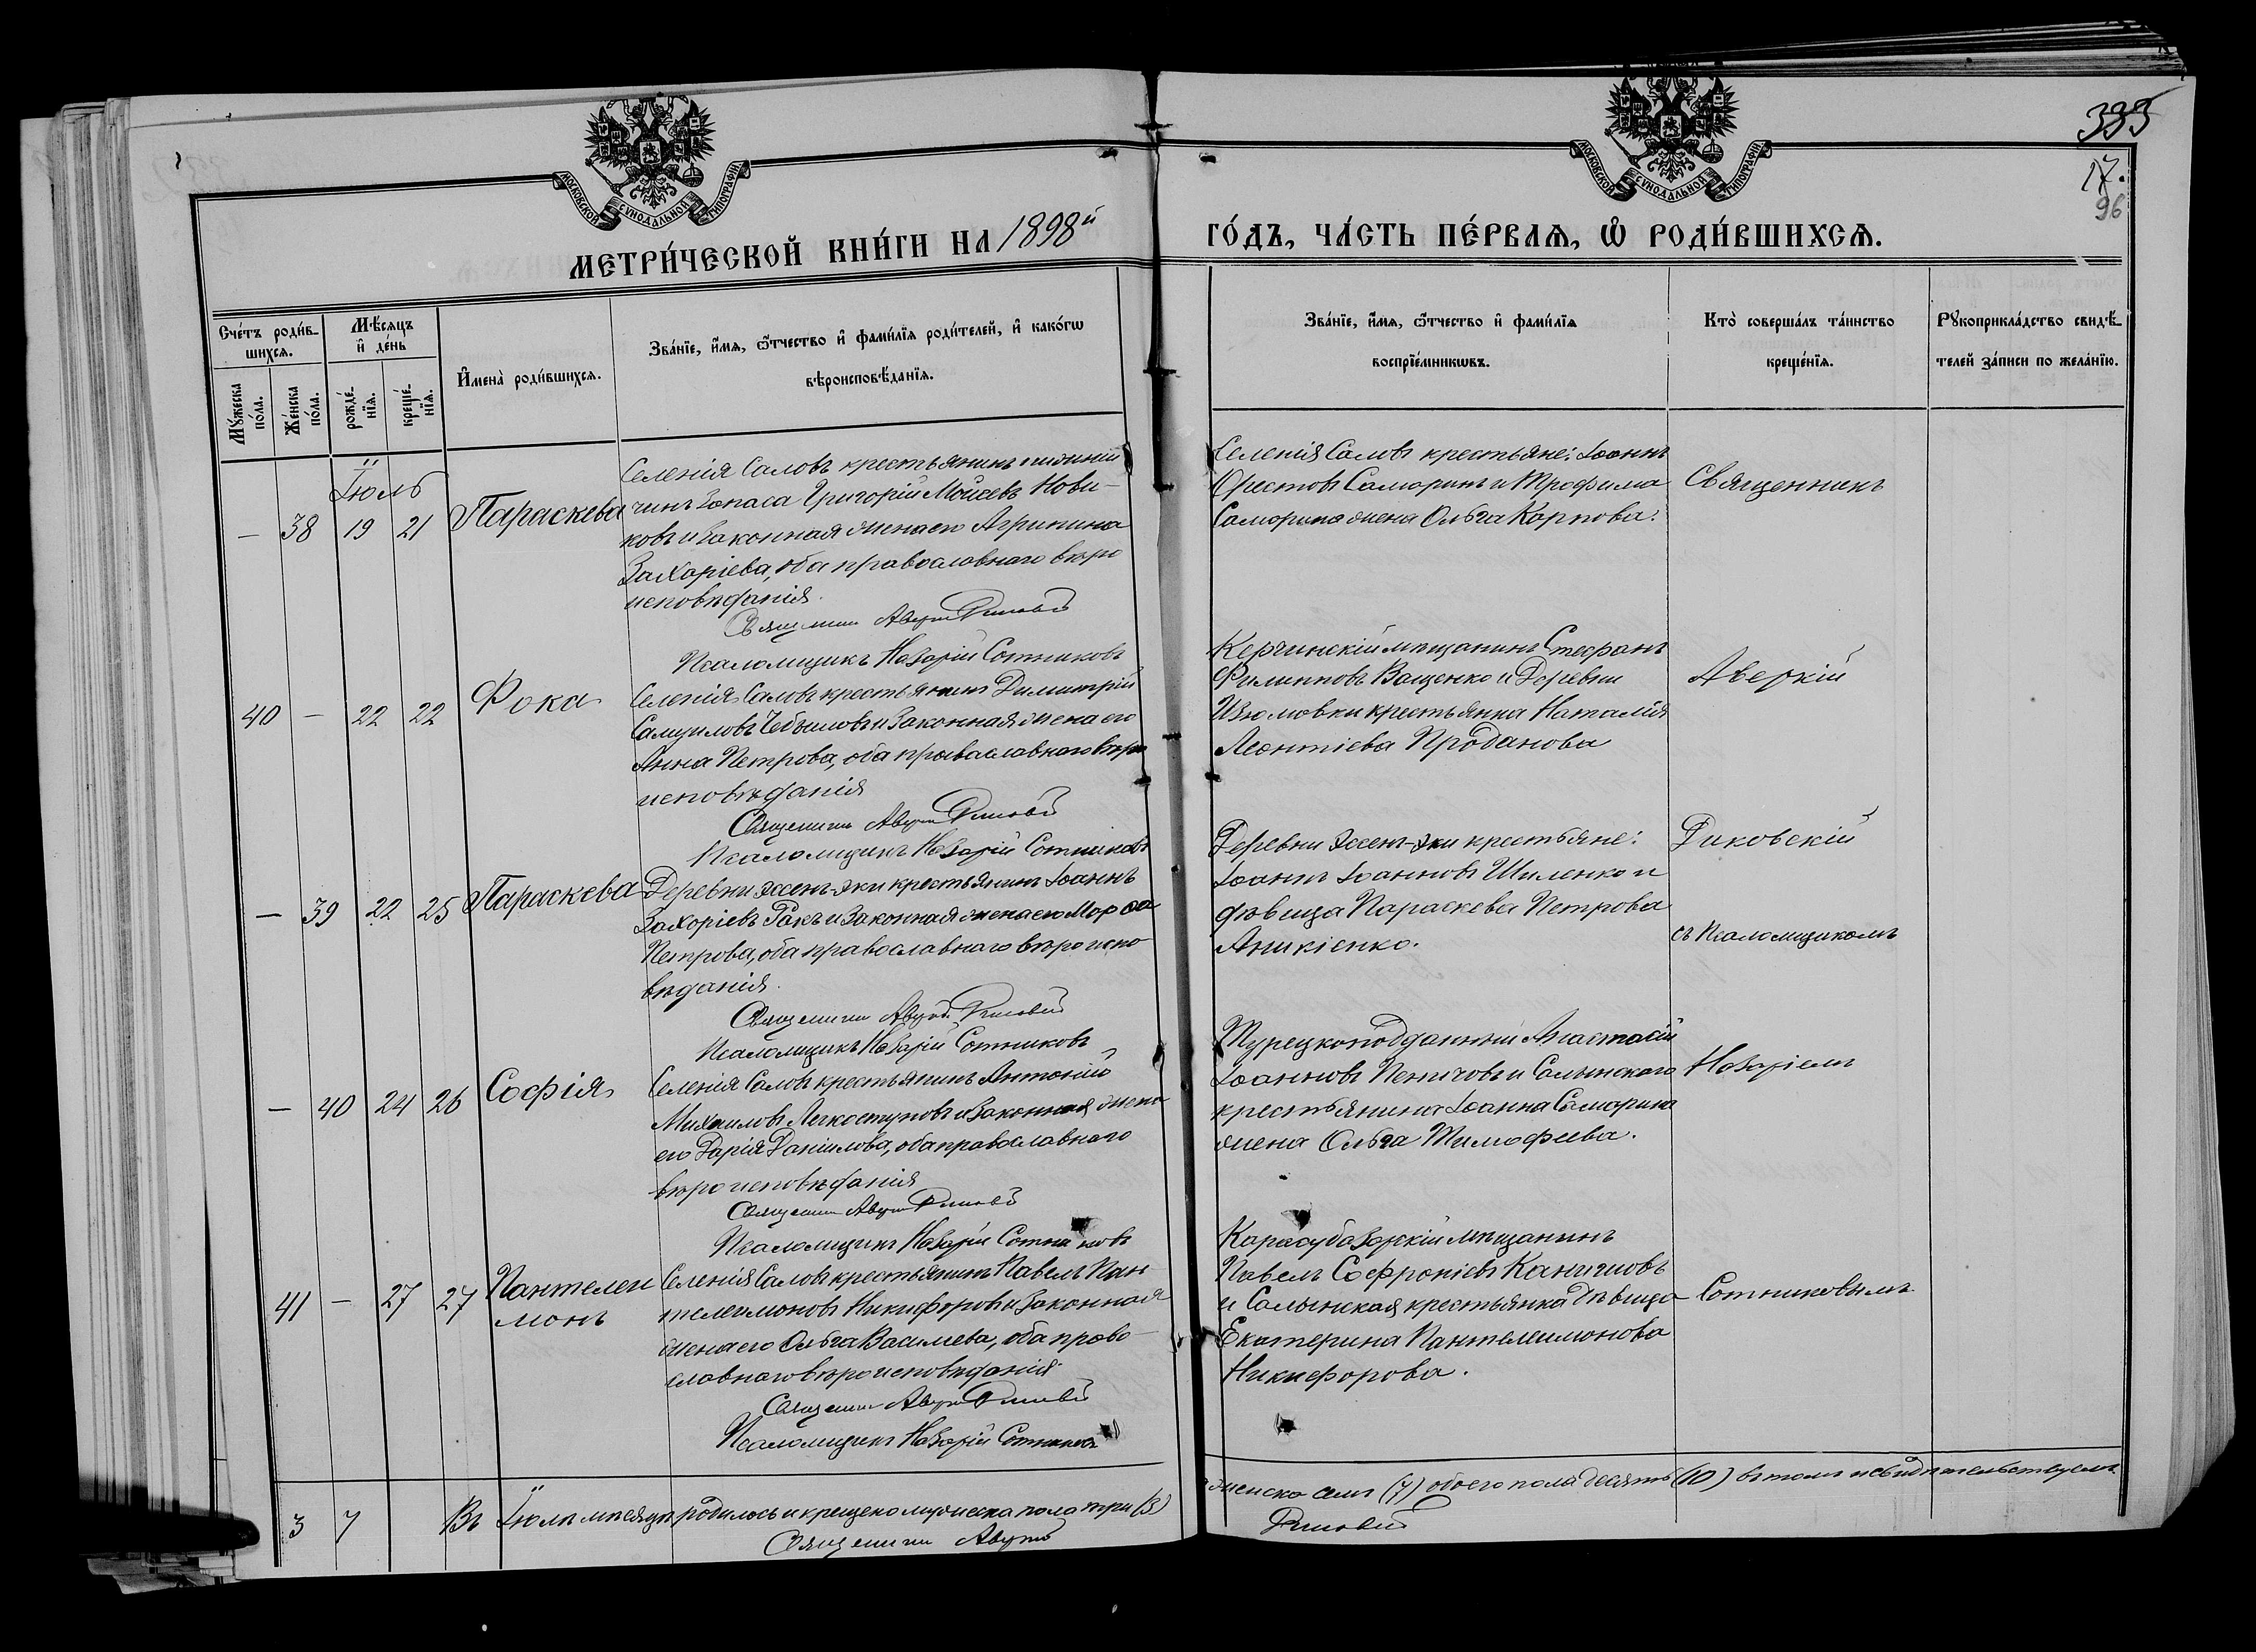 395
17.
96
МОСКОВСКОЙ СУНОДАЛЬНОЙ ТИПОГРАФІИ
МОСКОВСКОЙ СУНОДАЛЬНОЙ ТИПОГРАФІИ
МЕТРИ́ЧЕСКОЙ КНИ́ГИ НА 1898й
ГО́ДЪ, ЧА́СТЬ ПЕ́РВАѦ, Ѡ҆ РОДИ́ВШИХСѦ.
Сче́тъ роди́в-
шихсѧ.
Мꙋ́жеска по́ла.
Же́нска по́ла.
Мѣ́сѧцъ и҆ де́нь
рожде́-нїѧ.
креще́-нїѧ.
И҆мена̀ роди́вшихсѧ.
Зва́нїе, и҆́мѧ, ѻ҆́тчество и҆ фами́лїѧ роди́телей, и҆ како́гѡ
вѣроисповѣ́данїѧ.
Зва́нїе, и҆́мѧ, ѻ҆́тчество и҆ фами́лїѧ
воспрїе́мникѡвъ.
Кто̀ соверша́лъ та́инство
креще́нїѧ.
Рꙋкоприкла́дство свидѣ́-
телей за́писи по жела́нїю.
Іюль
— 38 19 21 Параскева
Селенія Саловъ крестьянинъ нижній
чинъ запаса Григорій Моисеевъ Нови-
ковъ и законная жена его Агрипина
Захаріева, оба православнаго вѣро
исповѣданія.
Священникъ Аверкій Диковскій
Псаломщикъ Назарій Сотниковъ
Селенія Саловъ крестьяне: Іоаннъ
Орестовъ Самаринъ и Трофима
Самарина жена Ольга Карпова.
Священникъ
40 — 22 22 Фока
Селенія Саловъ крестьянинъ Димитрій
Самуиловъ и законная жена его
Анна Петрова, оба православнаго вѣро
исповѣданія
Священникъ Аверкій Диковскій
Псаломщикъ Назарій Сотниковъ
Керчинскій мѣщанинъ Стефанъ
Филипповъ Ващенко и Деревни
Изюмовки крестьянка Наталія
Леонтіева Проданова
Аверкій
— 39 22 25 Параскева
Деревни крестьянинъ Іоаннъ
Захаріевъ Ракъ и законная жена его Марфа
Петрова, оба православнаго вѣроиспо-
вѣданія.
Священникъ Аверкій Диковскій
Псаломщикъ Назарій Сотниковъ
Деревни крестьяне:
Іоаннъ Іоанновъ Шиленко и
дѣвица Параскева Петрова
Аникіенко.
Диковскій
съ Псаломщикомъ
— 40 24 26 Софія
Селенія Саловъ крестьянинъ Антоній
Михаиловъ Легкоступовъ и законная жена
его Дарія Даніилова, оба православнаго
вѣроисповѣданія
Священникъ Аверкій Диковскій
Псаломщикъ Назарій Сотниковъ
Турецкоподданный Анастасій
Іоанновъ и Салынскаго
крестьянина Іоанна Самарина
жена Ольга Тимофеева.
Назаріемъ
41 — 27 27 Пантелеи
монъ
Селенія Саловъ крестьянинъ Павелъ Пан
телеимоновъ Никифоровъ и законная
жена его Ольга Василиева, оба право-
славнаго вѣроисповѣданія
Священникъ Аверкій Диковскій
Псаломщикъ Назарій Сотниковъ
Карасубазарскій мѣщанинъ
Павелъ Софроніевъ
и Салынская крестьянка дѣвица
Екатерина Пантелеимонова
Никифорова.
Сотниковымъ
3 7 Въ Іюлѣ мѣсяцѣ родилось и крещено мужеска пола три (3)
женска семь (7) обоего пола десять (10) въ томъ и свидѣтельствуемъ
Священникъ Аверкій
Диковскій